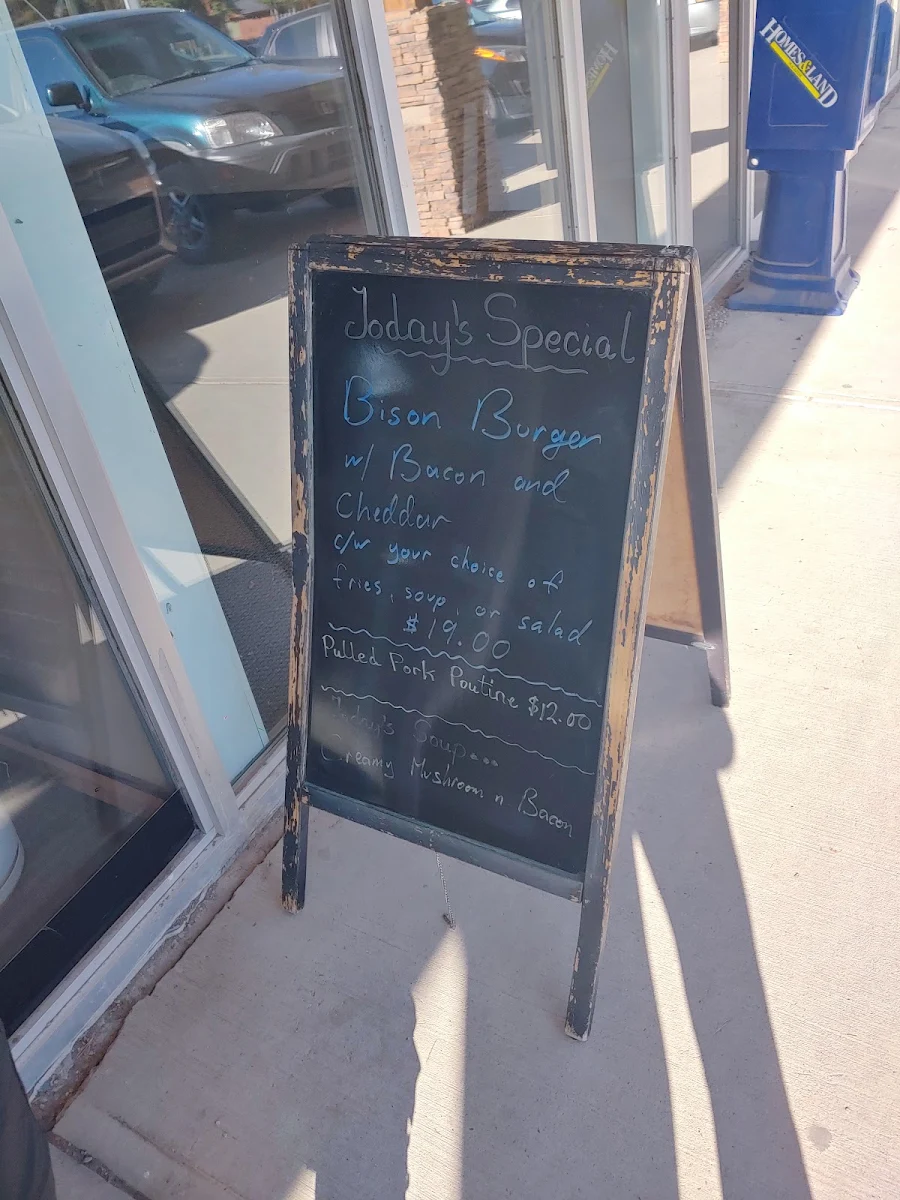 HOMES&LAND
Today's Special
Bison Burger
w/ Bacon and
Cheddar
c/w your choice of
fries, soup, or salad
$19.00
Pulled Pork Poutine $12.00
Today's Soup...
Creamy Mushroom n Bacon